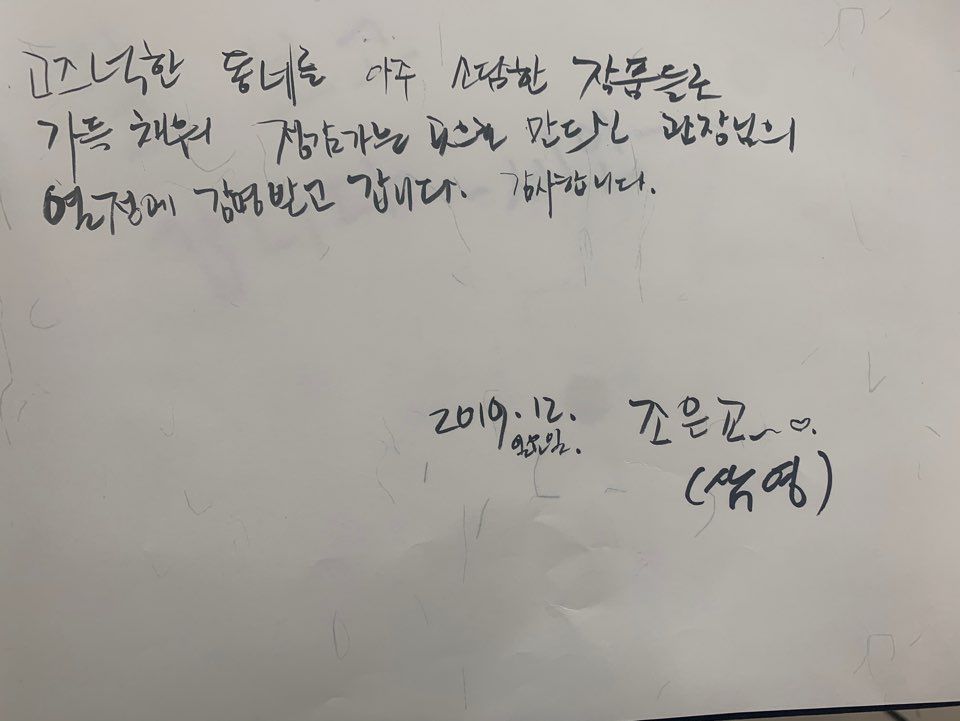 고즈넉한 동네를 아주 소담한 작품들로
가득 채워 정감가는 곳으로 만드신 관장님의
열정에 감명받고 갑니다. 감사합니다.
2019. 12. 조은교~♡.
일요일.
(삭영)